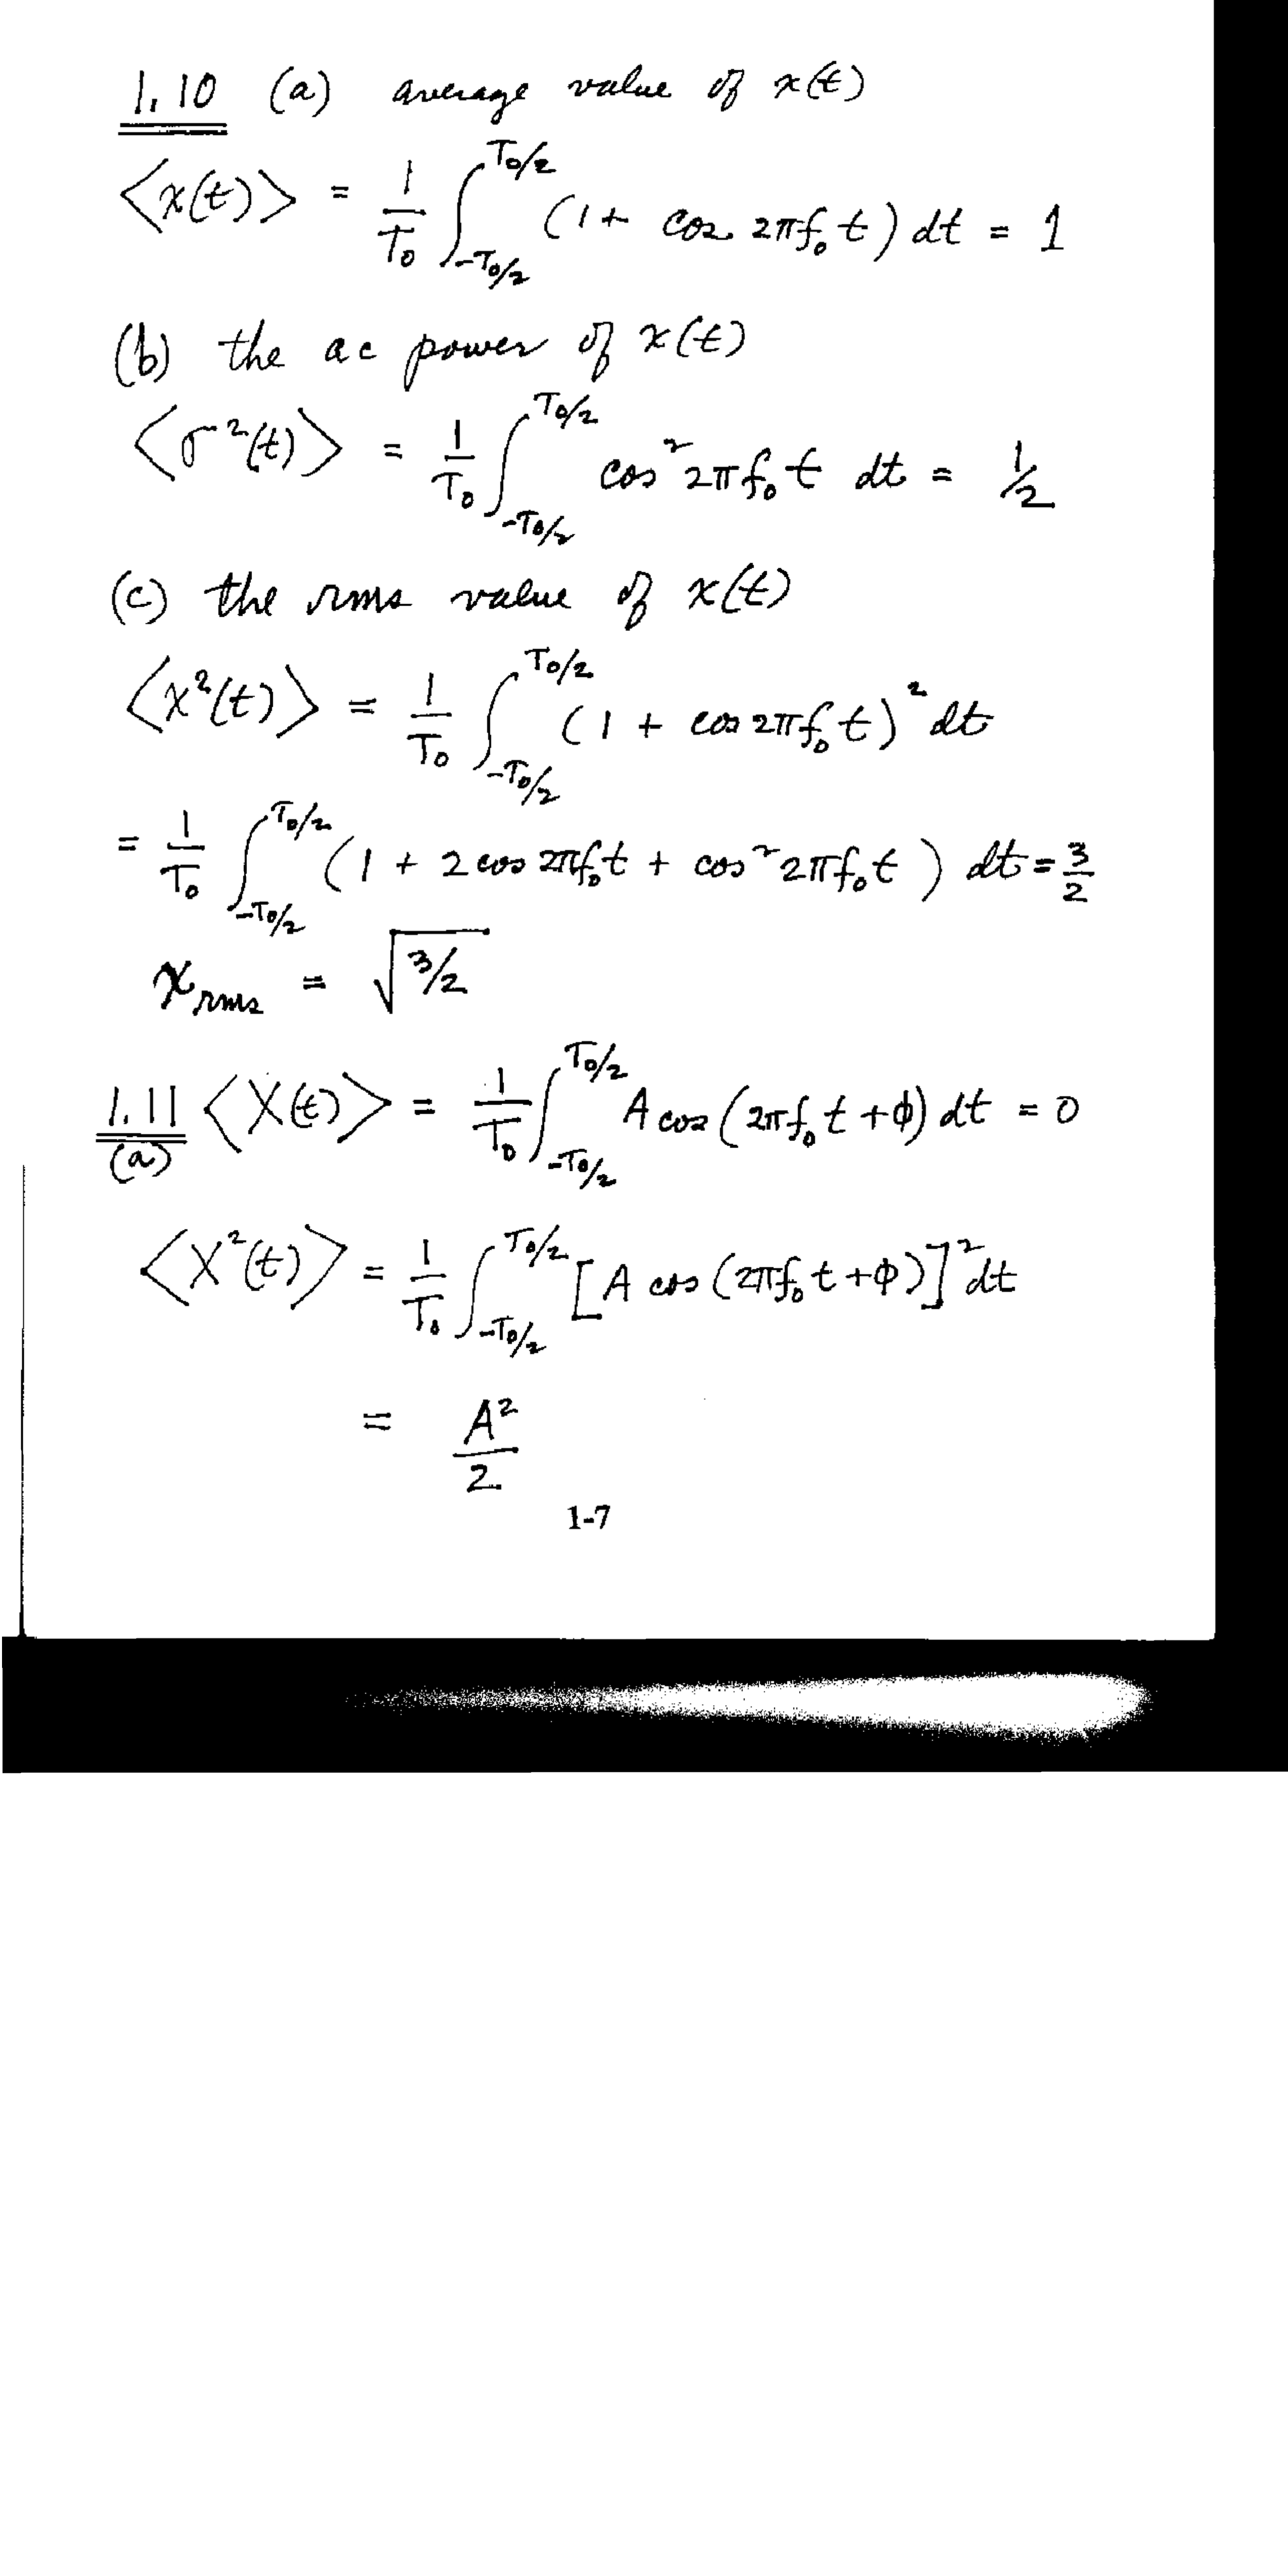 1.10 (a) average value of x(t)
⟨x(t)⟩ = 1/T₀ ∫_{-T₀/2}^{T₀/2} (1 + cos 2πf₀t) dt = 1
(b) the ac power of x(t)
⟨σ²(t)⟩ = 1/T₀ ∫_{-T₀/2}^{T₀/2} cos² 2πf₀t dt = 1/2
(c) the rms value of x(t)
⟨x²(t)⟩ = 1/T₀ ∫_{-T₀/2}^{T₀/2} (1 + cos 2πf₀t)² dt
= 1/T₀ ∫_{-T₀/2}^{T₀/2} (1 + 2 cos 2πf₀t + cos² 2πf₀t) dt = 3/2
x_rms = √(3/2)
1.11 (a) ⟨X(t)⟩ = 1/T₀ ∫_{-T₀/2}^{T₀/2} A cos (2πf₀t + ϕ) dt = 0
⟨X²(t)⟩ = 1/T₀ ∫_{-T₀/2}^{T₀/2} [A cos (2πf₀t + ϕ)]² dt
= A²/2
1-7